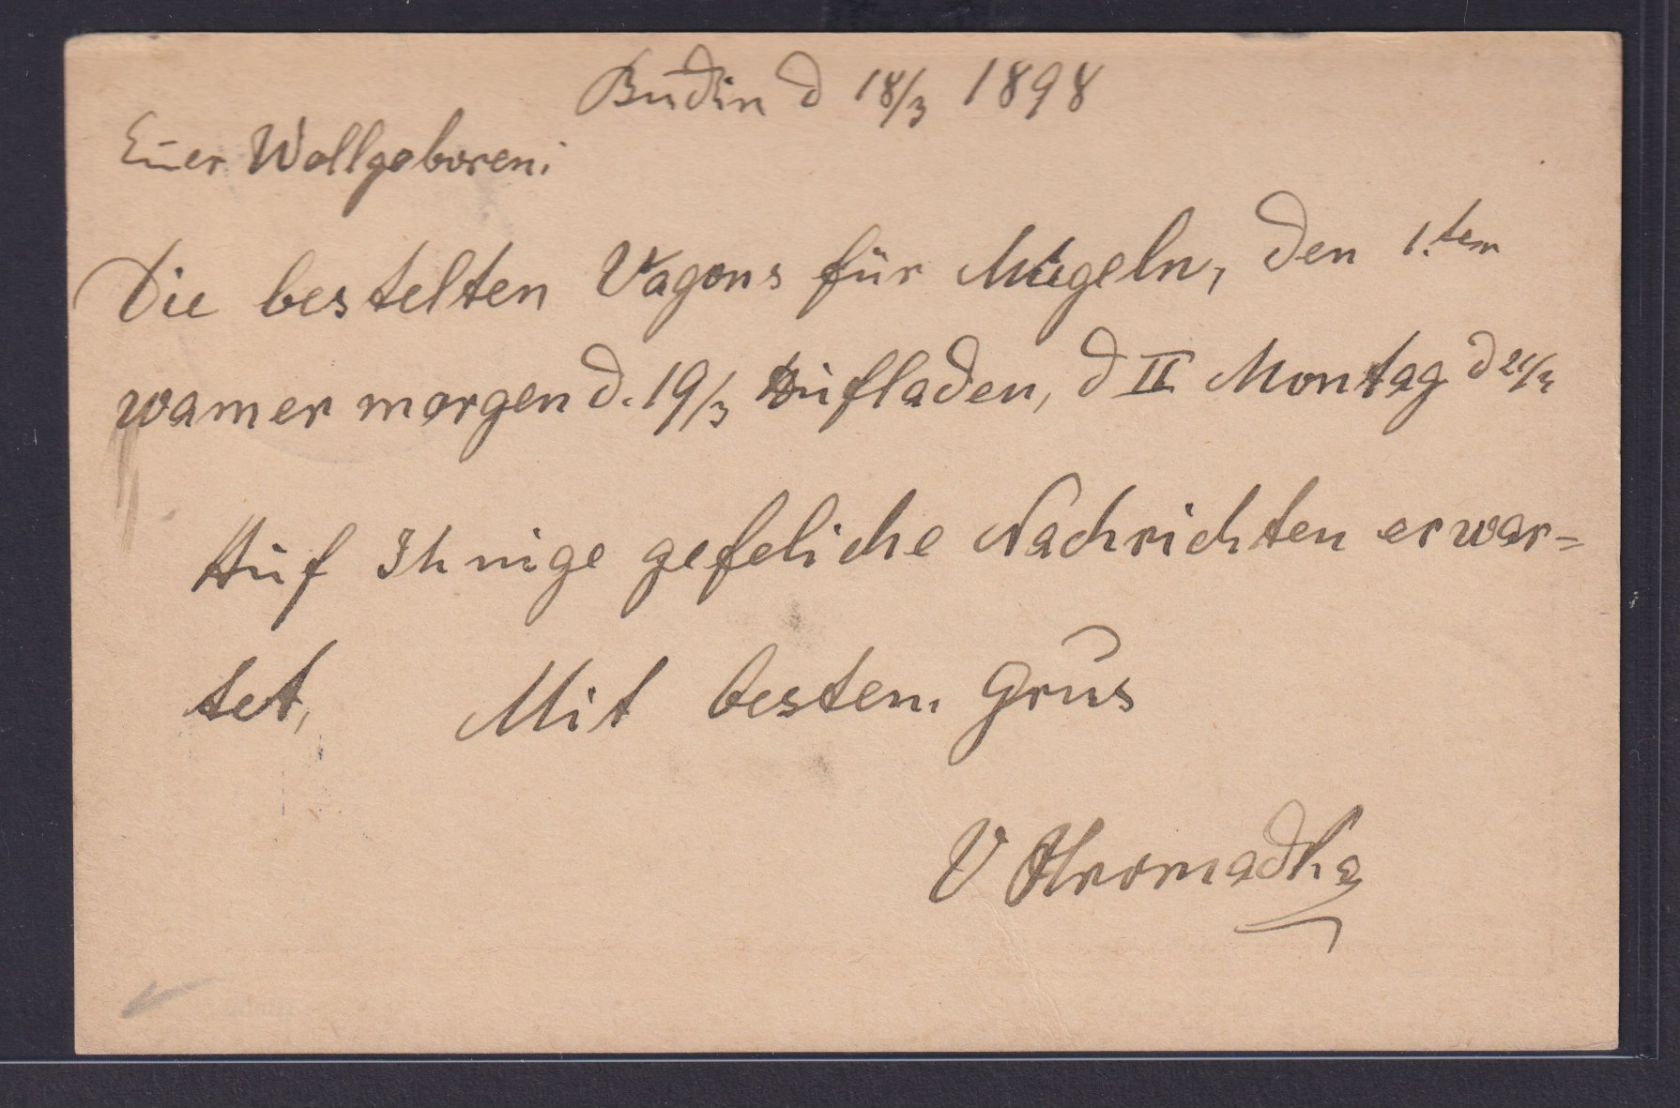 Budin d 18/3 1898
Euer Wollgeboren:
Die bestelten Vagons für Mügeln, den 1.ten
wamer morgen d. 19/3 Aufladen, d II Montag d 21/3
Auf Ihnige gefeliche Nachrichten erwar=
tet, Mit besten Grus
V Hromadka